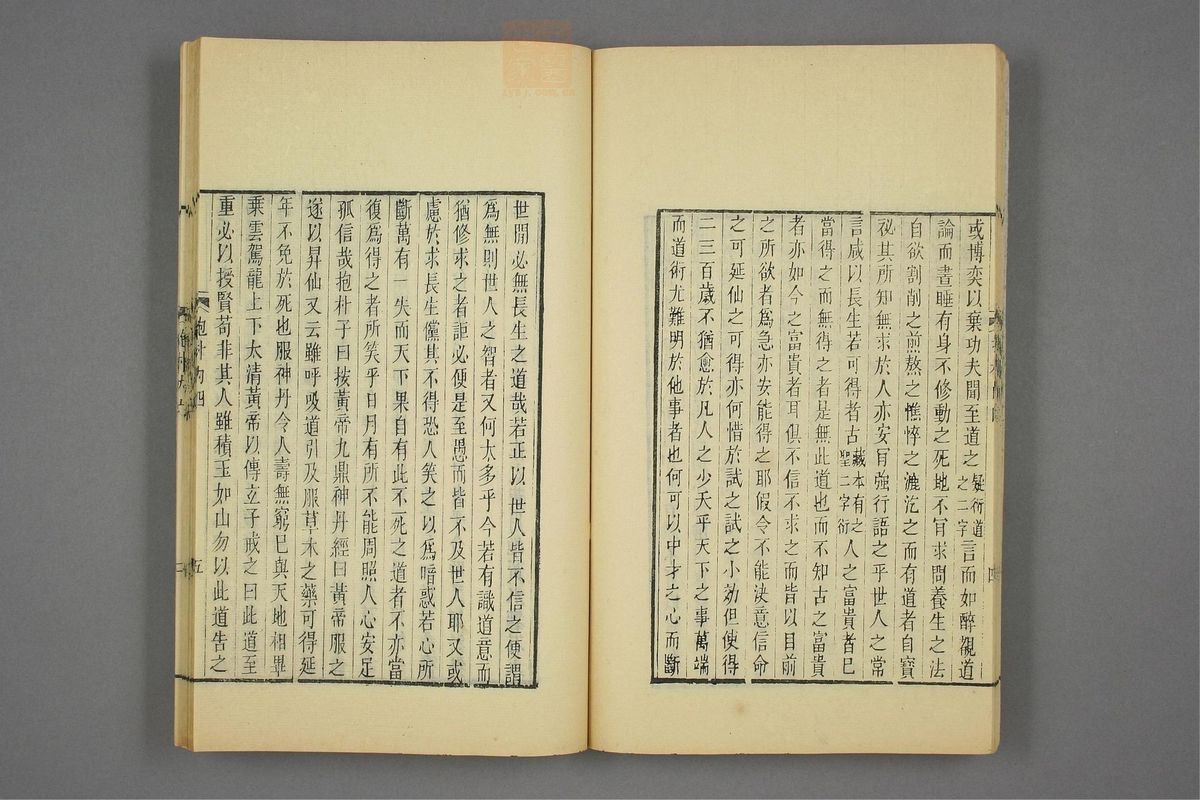 或博奕以棄功夫聞至道之疑衍道之二字言而如醉覩道
論而晝睡有身不修動之死地不肎求問養生之法
自欲割削之煎熬之憔悴之漉汔之而有道者自寶
祕其所知無求於人亦安肎強行語之乎世人之常
言咸以長生若可得者古藏本有之聖二字衍人之富貴者已
當得之而無得之者是無此道也而不知古之富貴
者亦如今之富貴者耳俱不信不求之而皆以目前
之所欲者爲急亦安能得之耶假令不能決意信命
之可延仙之可得亦何惜於試之試之小効但使得
二三百歲不猶愈於凡人之少夭乎天下之事萬端
而道術尤難明於他事者也何可以中才之心而斷
世閒必無長生之道哉若正以世人皆不信之便謂
爲無則世人之智者又何太多乎今若有識道意而
猶修求之者詎必便是至愚而皆不及世人耶又或
慮於求長生儻其不得恐人笑之以爲暗惑若心所
斷萬有一失而天下果自有此不死之道者不亦當
復爲得之者所笑乎日月有所不能周照人心安足
孤信哉抱朴子曰按黃帝九鼎神丹經曰黃帝服之
遂以昇仙又云雖呼吸道引及服草木之藥可得延
年不免於死也服神丹令人壽無窮已與天地相畢
乘雲駕龍上下太清黃帝以傳玄子戒之曰此道至
重必以授賢苟非其人雖積玉如山勿以此道告之
抱朴內四
五